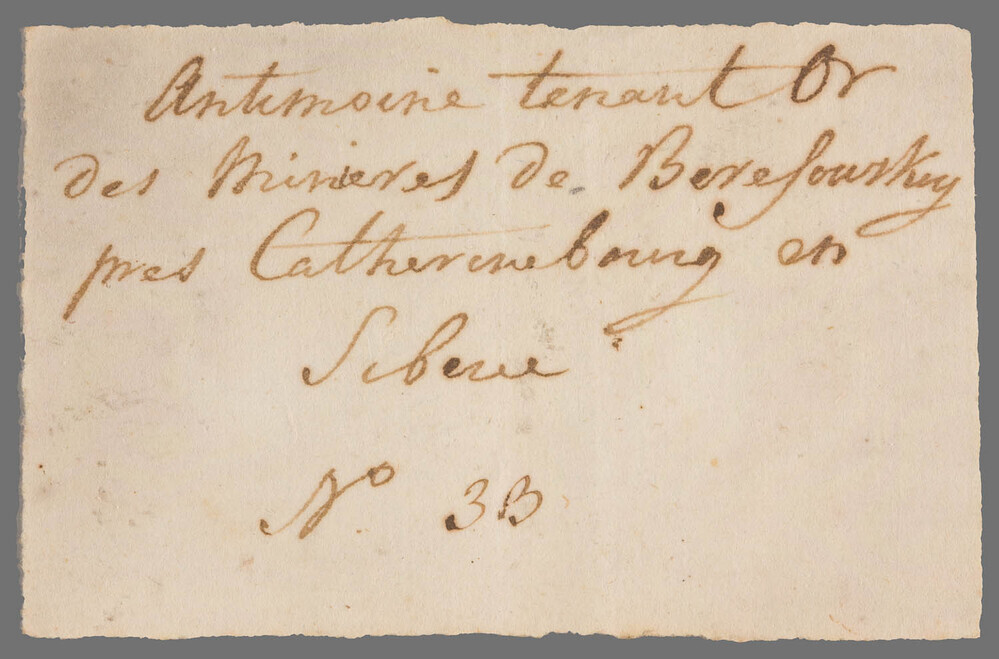 Antimoine tenant Or
des Minieres de Beresourskuy
pres Catherinebourg en
Siberie
No 3B